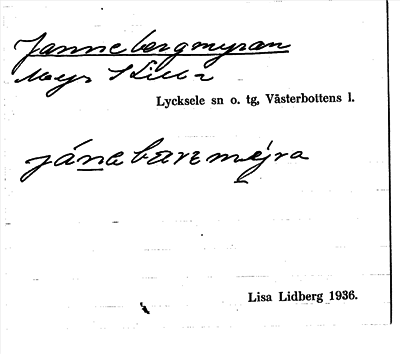 Jannebergmyran
Myr
Lycksele sn o. tg, Västerbottens l.
jánabærᴇmy̨ra
Lisa Lidberg 1936.